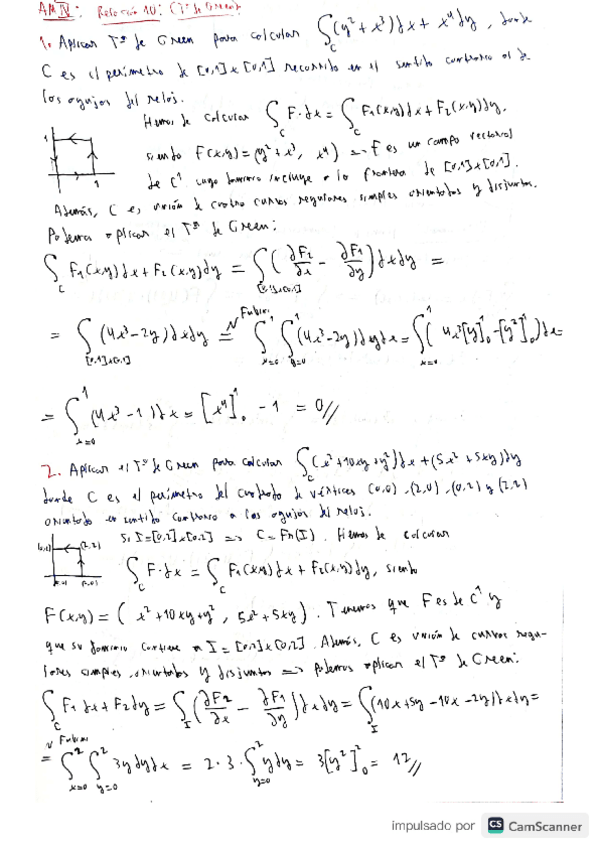 AM IV: Relación 10: (Tª de Green)
1. Aplicar Tª de Green para calcular ∫_C (y² + x³)dx + x⁴ dy, donde
C es el perímetro de [0,1]x[0,1] recorrido en el sentido contrario al de
las agujas del reloj.
Hemos de calcular ∫_C F·dx = ∫_C F₁(x,y)dx + F₂(x,y)dy,
siendo F(x,y) = (y² + x³, x⁴) ⇒ F es un campo vectorial
de C¹ cuyo dominio incluye a la frontera de [0,1]x[0,1].
Además, C es unión de cuatro curvas regulares simples orientadas y disjuntas.
Podemos aplicar el Tª de Green:
∫_C F₁(x,y)dx + F₂(x,y)dy = ∫_{[0,1]x[0,1]} (∂F₂/∂x − ∂F₁/∂y) dxdy =
= ∫_{[0,1]x[0,1]} (4x³−2y)dxdy = Fubini ∫_{x=0}^1 ∫_{y=0}^1 (4x³−2y)dydx = ∫_{x=0}^1 (4x³[y]₀¹ − [y²]₀¹)dx =
= ∫_{x=0}^1 (4x³ − 1)dx = [x⁴]₀¹ − 1 = 0//
2. Aplicar el Tª de Green para calcular ∫_C (x² + 10xy + y²)dx + (5x² + 5xy)dy
donde C es el perímetro del cuadrado de vértices (0,0), (2,0), (0,2) y (2,2)
orientado en sentido contrario a las agujas del reloj.
Si I = [0,2]x[0,2] ⇒ C = Fr(I). Hemos de calcular
(0,2) (2,2)
(0,0) (2,0)
∫_C F·dx = ∫_C F₁(x,y)dx + F₂(x,y)dy, siendo
F(x,y) = (x² + 10xy + y², 5x² + 5xy). Tenemos que F es de C¹ y
que su dominio contiene a I = [0,2]x[0,2]. Además, C es unión de curvas regu-
lares simples, orientadas y disjuntas ⇒ podemos aplicar el Tª de Green:
∫_C F₁dx + F₂dy = ∫_I (∂F₂/∂x − ∂F₁/∂y) dxdy = ∫_I (10x + 5y − 10x − 2y)dxdy =
Fubini
= ∫_{x=0}^2 ∫_{y=0}^2 3y dydx = 2·3·∫_{y=0}^2 y dy = 3[y²]₀² = 12//
impulsado por CS CamScanner